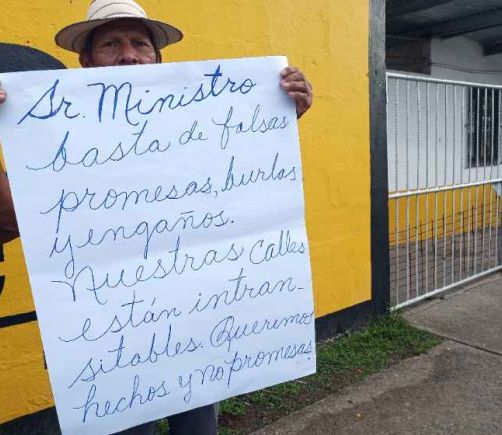 Sr. Ministro
basta de falsas
promesas, burlas
y engaños.
Nuestras calles
están intran-
sitables. Queremos
hechos y no promesas.